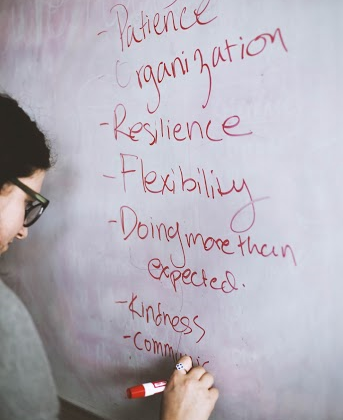 -Patience
Organization
-Resilience
-Flexibility
-Doing more than
expected.
-Kindness